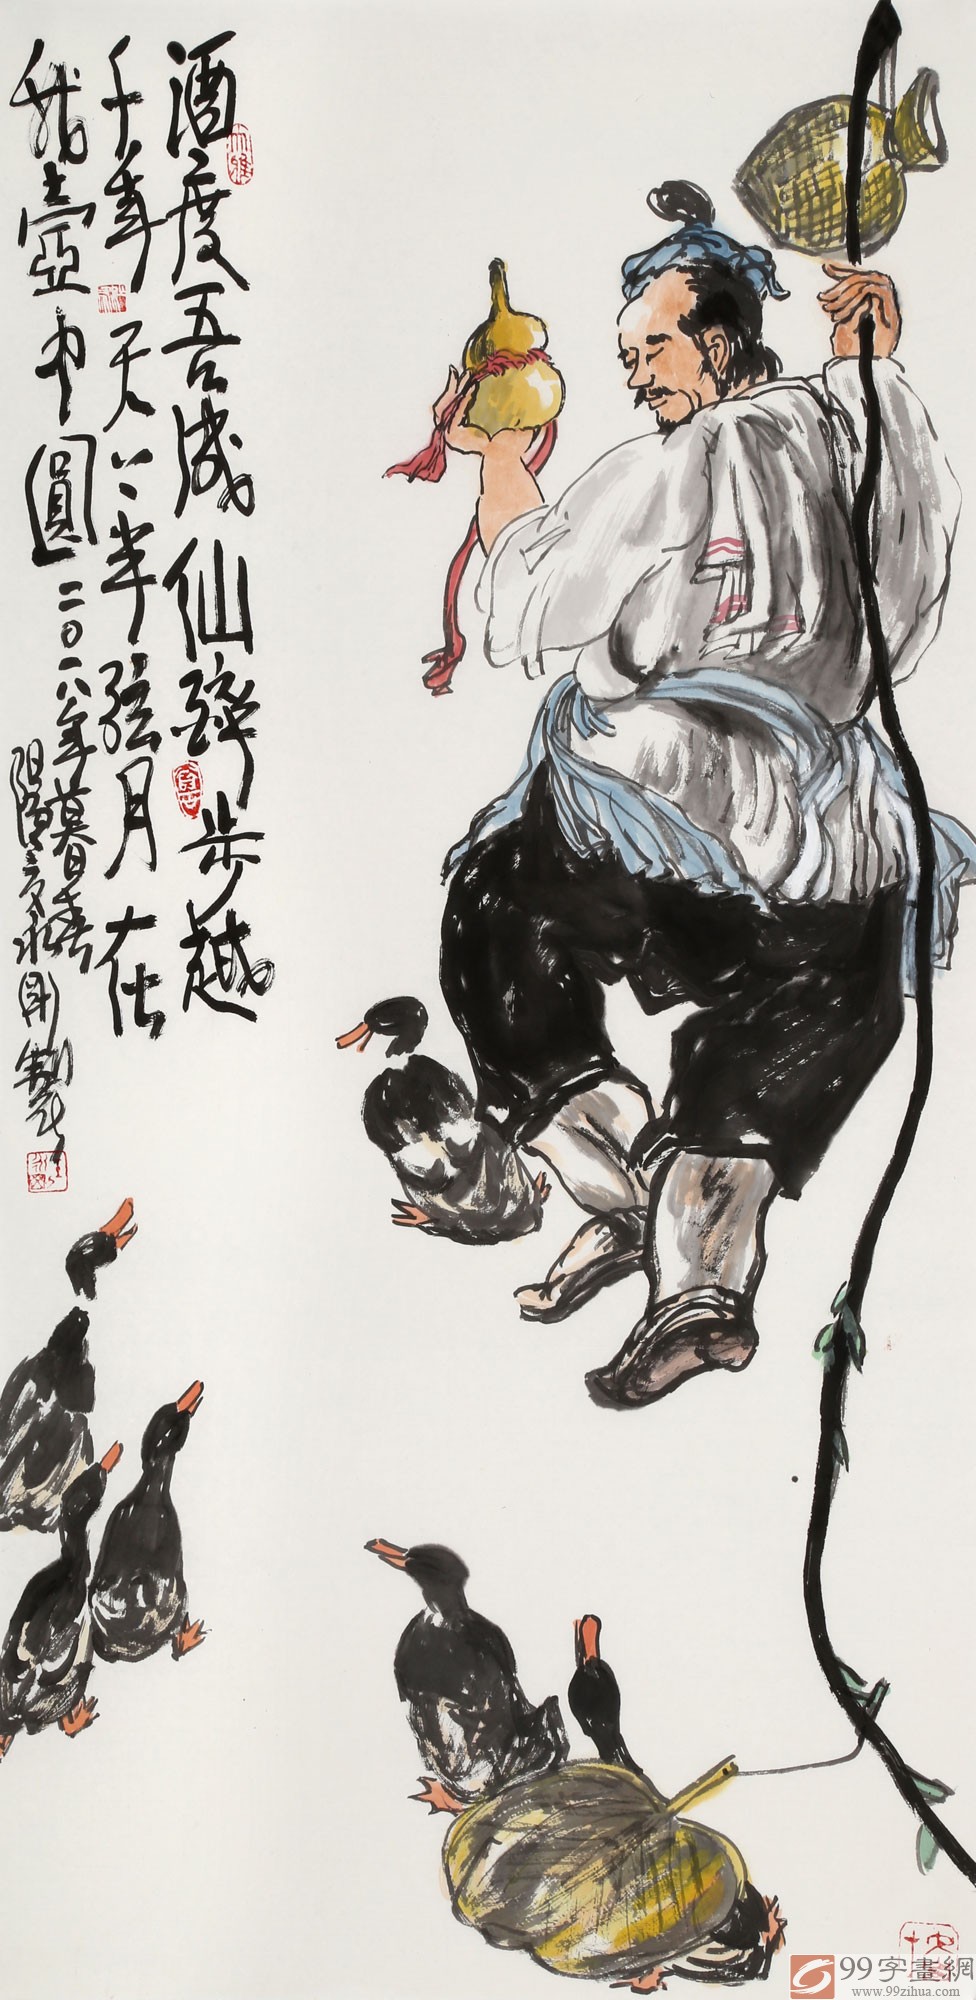 酒度吾成仙醉步越
千年天上半弦月在
我壶中圆二〇一八年暮春
99字畫網
www.99zihua.com